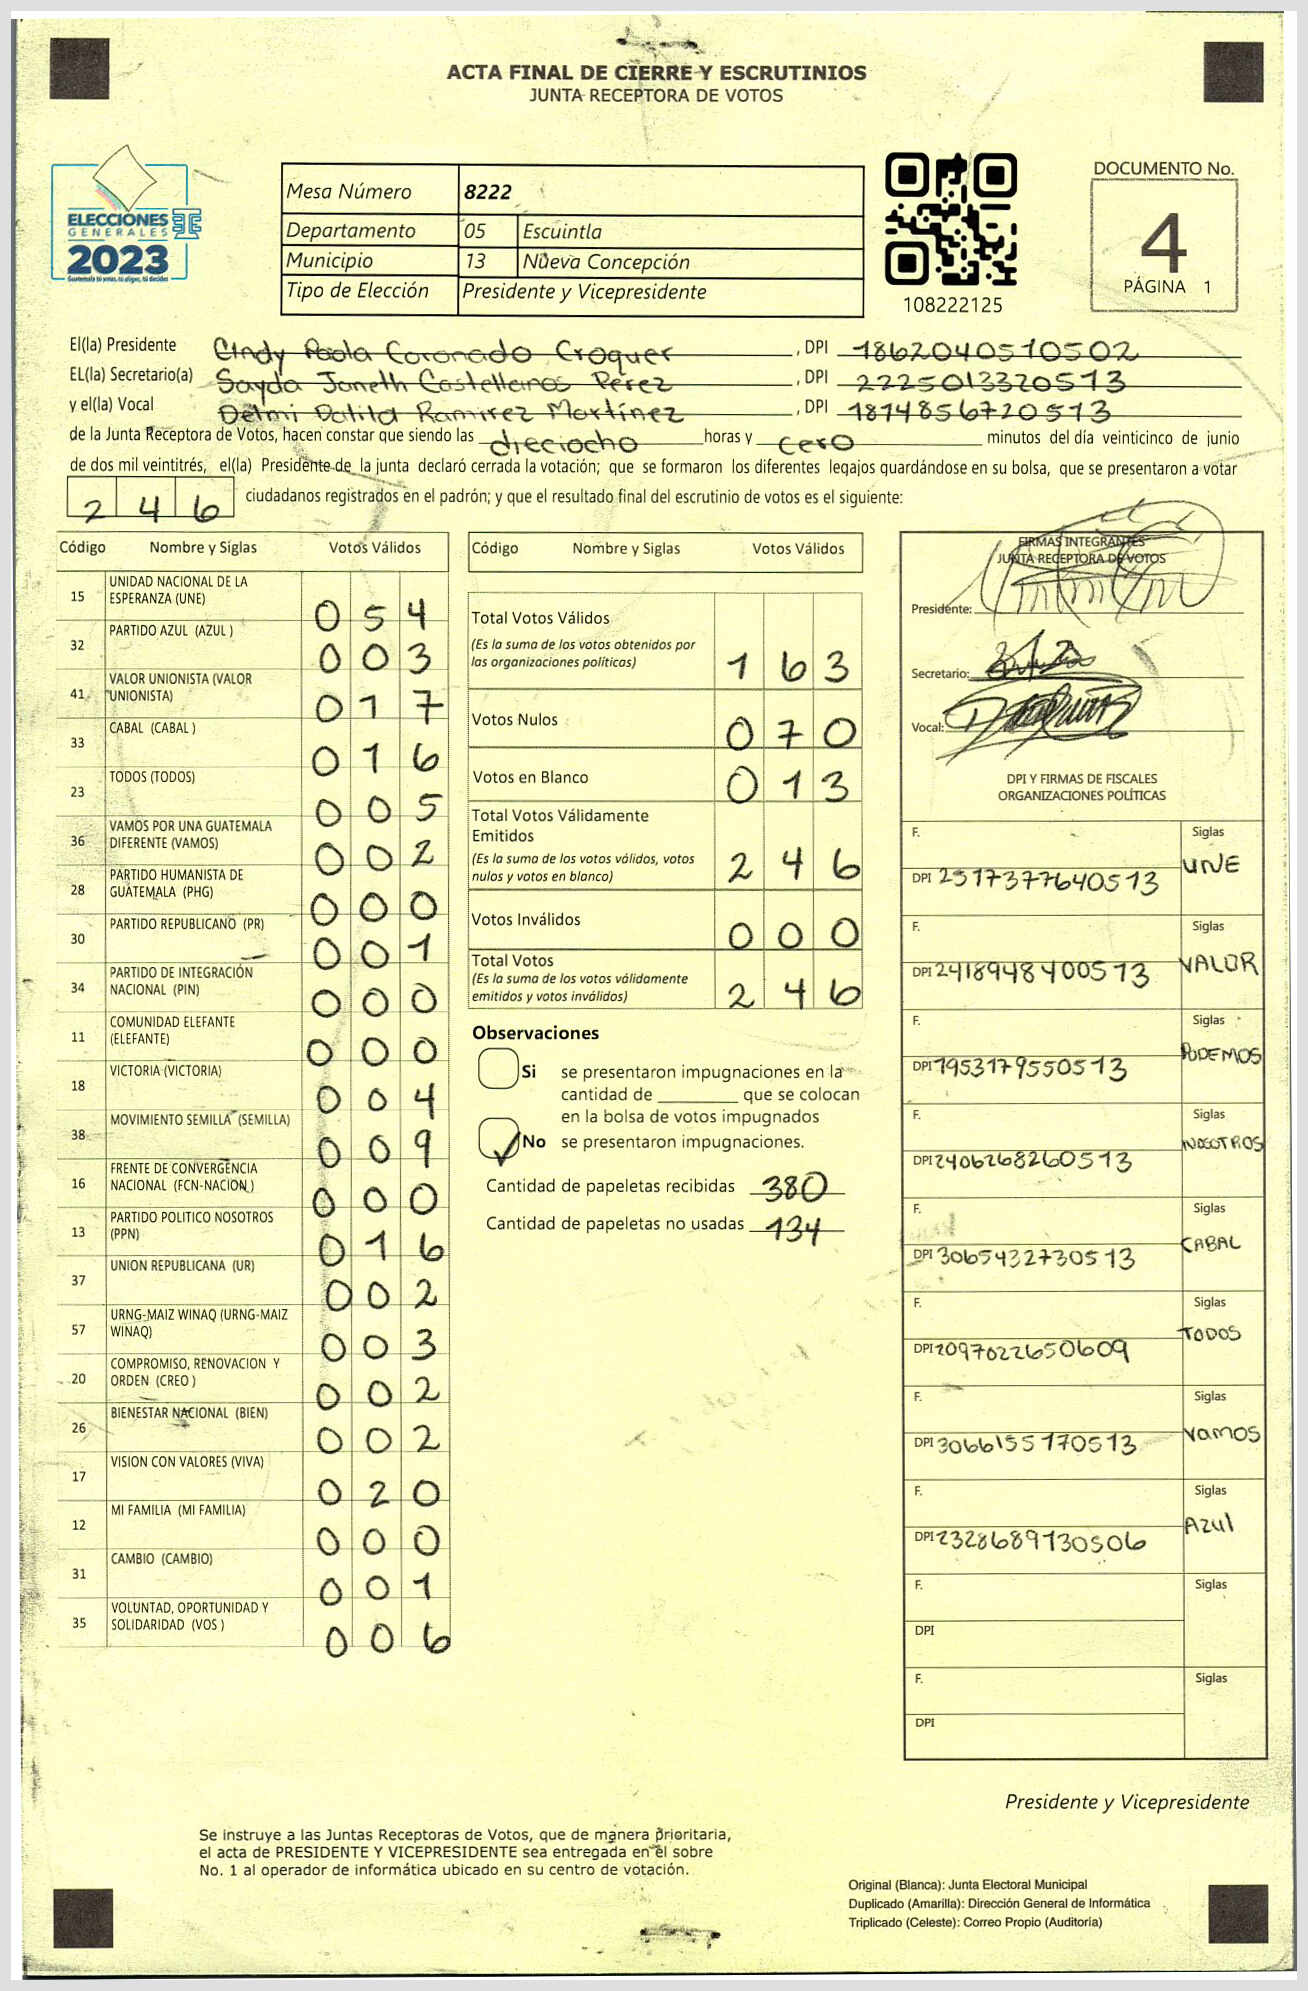 ACTA FINAL DE CIERRE Y ESCRUTINIOS
JUNTA RECEPTORA DE VOTOS
ELECCIONES
GENERALES
2023
Guatemala tú votas, tú eliges, tú decides
Mesa Número 8222
Departamento 05 Escuintla
Municipio 13 Nueva Concepción
Tipo de Elección Presidente y Vicepresidente
108222125
DOCUMENTO No.
4
PÁGINA 1
El(la) Presidente Cindy Paola Coronado Croquer, DPI 1862040510502
EL(la) Secretario(a) Sayda Janeth Castellanos Perez, DPI 2225013320513
y el(la) Vocal Delmi Dalila Ramirez Martínez, DPI 1874856720513
de la Junta Receptora de Votos, hacen constar que siendo las dieciocho horas y cero minutos del día veinticinco de junio
de dos mil veintitrés, el(la) Presidente de la junta declaró cerrada la votación; que se formaron los diferentes legajos guardándose en su bolsa, que se presentaron a votar
246 ciudadanos registrados en el padrón; y que el resultado final del escrutinio de votos es el siguiente:
Código Nombre y Siglas Votos Válidos
15 UNIDAD NACIONAL DE LA ESPERANZA (UNE) 054
32 PARTIDO AZUL (AZUL ) 003
41 VALOR UNIONISTA (VALOR UNIONISTA) 017
33 CABAL (CABAL ) 016
23 TODOS (TODOS) 005
36 VAMOS POR UNA GUATEMALA DIFERENTE (VAMOS) 002
28 PARTIDO HUMANISTA DE GUATEMALA (PHG) 000
30 PARTIDO REPUBLICANO (PR) 001
34 PARTIDO DE INTEGRACIÓN NACIONAL (PIN) 000
11 COMUNIDAD ELEFANTE (ELEFANTE) 000
18 VICTORIA (VICTORIA) 004
38 MOVIMIENTO SEMILLA (SEMILLA) 009
16 FRENTE DE CONVERGENCIA NACIONAL (FCN-NACION ) 000
13 PARTIDO POLITICO NOSOTROS (PPN) 016
37 UNION REPUBLICANA (UR) 002
57 URNG-MAIZ WINAQ (URNG-MAIZ WINAQ) 003
20 COMPROMISO, RENOVACION Y ORDEN (CREO ) 002
26 BIENESTAR NACIONAL (BIEN) 002
17 VISION CON VALORES (VIVA) 020
12 MI FAMILIA (MI FAMILIA) 000
31 CAMBIO (CAMBIO) 001
35 VOLUNTAD, OPORTUNIDAD Y SOLIDARIDAD (VOS ) 006
Código Nombre y Siglas Votos Válidos
Total Votos Válidos
(Es la suma de los votos obtenidos por
las organizaciones políticas) 163
Votos Nulos 070
Votos en Blanco 013
Total Votos Válidamente
Emitidos
(Es la suma de los votos válidos, votos
nulos y votos en blanco) 246
Votos Inválidos 000
Total Votos
(Es la suma de los votos válidamente
emitidos y votos inválidos) 246
Observaciones
Si se presentaron impugnaciones en la
cantidad de ________ que se colocan
en la bolsa de votos impugnados
No se presentaron impugnaciones.
Cantidad de papeletas recibidas 380
Cantidad de papeletas no usadas 134
FIRMAS INTEGRANTES
JUNTA RECEPTORA DE VOTOS
Presidente:
Secretario:
Vocal:
DPI Y FIRMAS DE FISCALES
ORGANIZACIONES POLÍTICAS
F. Siglas
DPI 2517377640513 UNE
F. Siglas
DPI 2418948400513 VALOR
F. Siglas
DPI 1953179550513 PODEMOS
F. Siglas
DPI 2406268260513 NOSOTROS
F. Siglas
DPI 3065432730513 CABAL
F. Siglas
DPI 2097022650609 TODOS
F. Siglas
DPI 3066155170513 Vamos
F. Siglas
DPI 2328689730506 Azul
F. Siglas
DPI
F. Siglas
DPI
Presidente y Vicepresidente
Se instruye a las Juntas Receptoras de Votos, que de manera prioritaria,
el acta de PRESIDENTE Y VICEPRESIDENTE sea entregada en el sobre
No. 1 al operador de informática ubicado en su centro de votación.
Original (Blanca): Junta Electoral Municipal
Duplicado (Amarilla): Dirección General de Informática
Triplicado (Celeste): Correo Propio (Auditoria)